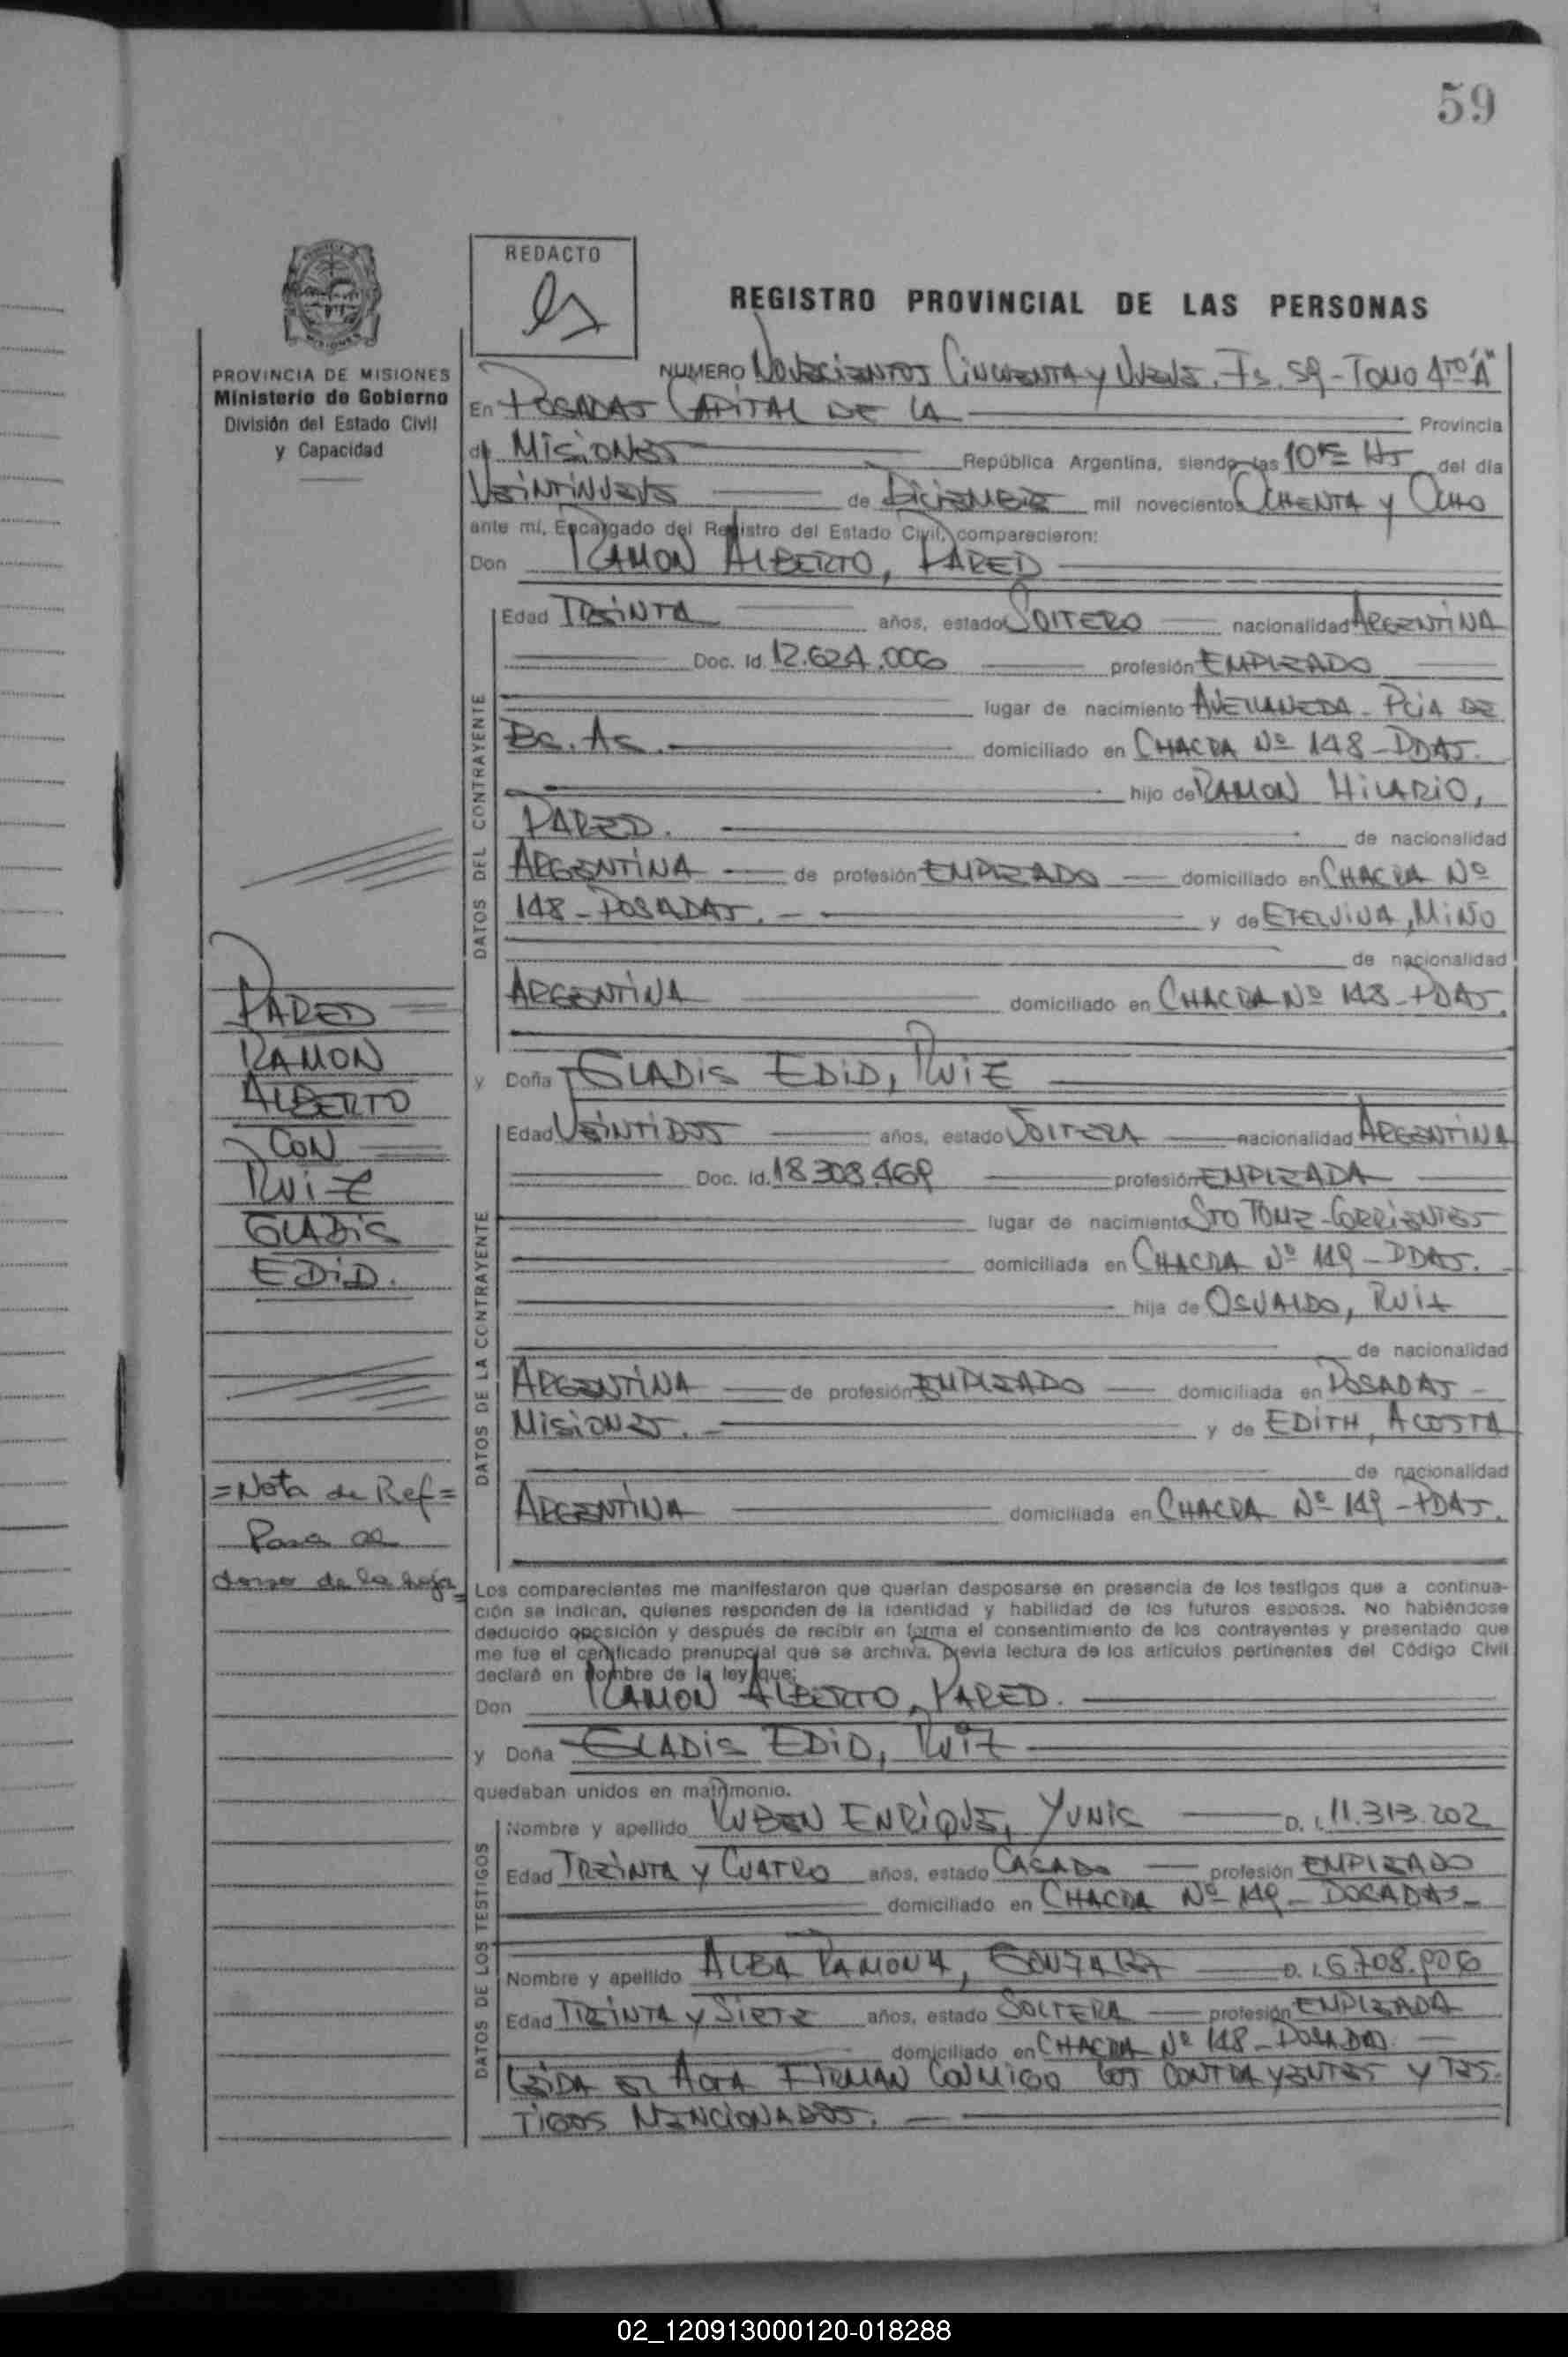 59
REDACTO
REGISTRO PROVINCIAL DE LAS PERSONAS
PROVINCIA DE MISIONES
Ministerio de Gobierno
División del Estado Civil
y Capacidad
NUMERO NOVECIENTOS CINCUENTA Y NUEVE. Fs. 59 - TOMO 4TO "A"
En POSADAS CAPITAL DE LA Provincia
de MISIONES República Argentina, siendo las 10 HS del día
VEINTINUEVE de DICIEMBRE mil novecientos OCHENTA Y OCHO
ante mí, Encargado del Registro del Estado Civil, comparecieron:
Don RAMON ALBERTO, PARED
DATOS DEL CONTRAYENTE
Edad TREINTA años, estado SOLTERO nacionalidad ARGENTINA
Doc. Id. 12.624.006 profesión EMPLEADO
lugar de nacimiento AVELLANEDA - PCIA DE
BS. AS. domiciliado en CHACRA Nº 148 - PDAS.
hijo de RAMON HILARIO,
PARED. de nacionalidad
ARGENTINA de profesión EMPLEADO domiciliado en CHACRA Nº
148 - POSADAS. y de ETELVINA, MIÑO
de nacionalidad
ARGENTINA domiciliado en CHACRA Nº 148 - PDAS.
PARED
RAMON
ALBERTO
CON
RUIZ
GLADIS
EDID.
y Doña GLADIS EDID, RUIZ
DATOS DE LA CONTRAYENTE
Edad VEINTIDOS años, estado SOLTERA nacionalidad ARGENTINA
Doc. Id. 18.308.469 profesión EMPLEADA
lugar de nacimiento STO TOME - CORRIENTES
domiciliada en CHACRA Nº 149 - PDAS.
hija de OSVALDO, RUIZ
de nacionalidad
ARGENTINA de profesión EMPLEADO domiciliada en POSADAS -
MISIONES. y de EDITH, ACOSTA
de nacionalidad
ARGENTINA domiciliada en CHACRA Nº 149 - PDAS.
= Nota de Ref =
Pasa al
dorso de la hoja =
Los comparecientes me manifestaron que querían desposarse en presencia de los testigos que a continua-
ción se indican, quienes responden de la identidad y habilidad de los futuros esposos. No habiéndose
deducido oposición y después de recibir en forma el consentimiento de los contrayentes y presentado que
me fue el certificado prenupcial que se archiva, previa lectura de los artículos pertinentes del Código Civil
declaré en nombre de la ley que:
Don RAMON ALBERTO, PARED.
y Doña GLADIS EDID, RUIZ
quedaban unidos en matrimonio.
DATOS DE LOS TESTIGOS
Nombre y apellido RUBEN ENRIQUE, YUNIS D. I. 11.313.202
Edad TREINTA Y CUATRO años, estado CASADO profesión EMPLEADO
domiciliado en CHACRA Nº 149 - POSADAS -
Nombre y apellido ALBA RAMONA, GONZALEZ D. I. 6.708.906
Edad TREINTA Y SIETE años, estado SOLTERA profesión EMPLEADA
domiciliado en CHACRA Nº 148 - POSADAS.
LEIDA EL ACTA FIRMAN CONMIGO LOS CONTRAYENTES Y TES-
TIGOS MENCIONADOS.
02_120913000120-018288